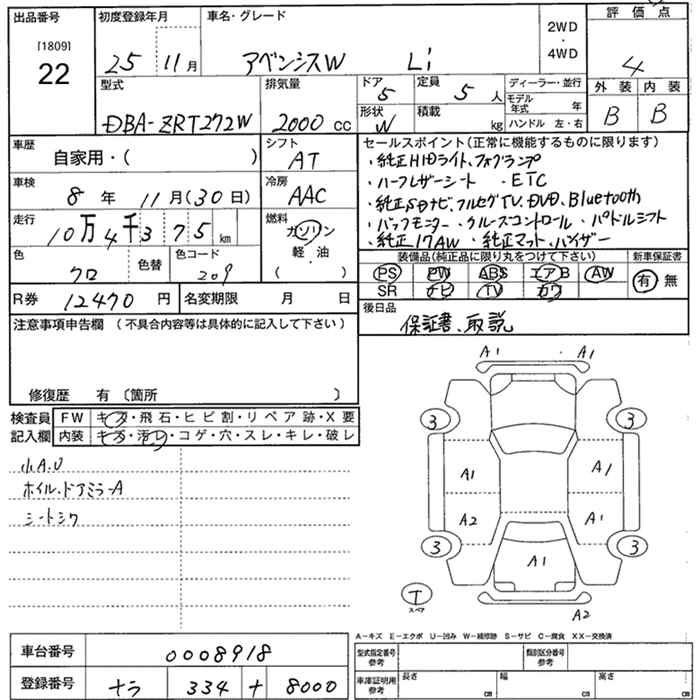 出品番号 初度登録年月 車名・グレード 2WD・4WD 評価点
[1809]
22 25 11月 アベンシスW Li 4
型式 排気量 ドア 5 定員 5人 ディーラー・並行 外装 内装
DBA-ZRT272W 2000cc 形状 W 積載 kg モデル年式 年 B B
ハンドル 左・右
車歴 シフト セールスポイント(正常に機能するものに限ります)
自家用・( ) AT ・純正HIDライト、フォグランプ
車検 冷房 ・ハーフレザーシート ・ETC
8年 11月(30日) AAC ・純正SDナビ、フルセグTV、DVD、Bluetooth
走行 燃料 ・バックモニター・クルーズコントロール・パドルシフト
10万4千375km ガソリン ・純正17AW ・純正マット・バイザー
色 色替 色コード 軽・油 装備品(純正品に限り丸をつけて下さい) 新車保証書
クロ 209 ( ) PS PW ABS エアB AW 有 無
R券 12470円 名変期限 月 日 SR ナビ TV カワ
注意事項申告欄(不具合内容等は具体的に記入して下さい) 後日品
保証書、取説
修復歴 有〔箇所 〕
検査員 FW キズ・飛石・ヒビ割・リペア跡・X要
記入欄 内装 キズ・汚レ・コゲ・穴・スレ・キレ・破レ
小A.U
ホイル.ドアミラーA
シートシワ
A1 A1
3 3
A1 A1
A2 A1
3 3
A1
T
スペア
A2
A-キズ E-エクボ U-凹み W-補修跡 S-サビ C-腐食 XX-交換済
車台番号 0008918 型式指定番号 参考 類別区分番号 参考
登録番号 ナラ 334 + 8000 車庫証明用 参考 長さ cm 幅 cm 高さ cm